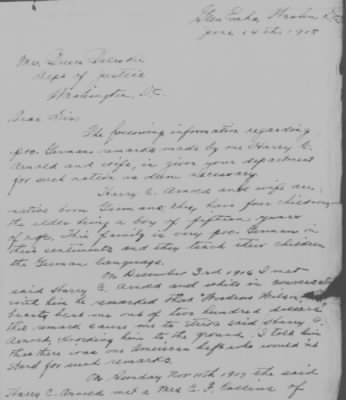 Glen Echo, Washn D.C.
June 14th, 1918
Mr. Bruce Bielaski
Dept of Justice
Washington, D.C.
Dear Sir:
The following information regarding
pro. German remarks made by one Harry E.
Arnold and wife, is given your department
for such action as deem necessary.
Harry E. Arnold and wife are
native born Germans, they have four children
the elder being a boy of fifteen years
of age. This family is very pro. German in
their sentiments and they teach their children
the German language.
On December 3rd 1916 I met
said Harry E. Arnold and while in conversation
with him he remarked that "Woodrow Wilson
beat me out of two hundred dollars"
this remark cause me to strike said Harry E.
Arnold, knocking him to the ground. I told him
that there was one American left who would not
stand for such remarks.
On Sunday Nov 11th 1917 the said
Harry E. Arnold met a Mrs C. F. Collins of